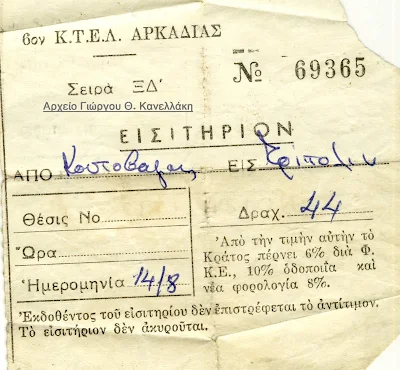 6ον Κ.Τ.Ε.Λ. ΑΡΚΑΔΙΑΣ
Σειρὰ ΞΔ'
№ 69365
Αρχείο Γιώργου Θ. Κανελλάκη
ΕΙΣΙΤΗΡΙΟΝ
ΑΠΟ Κουτοβάζαινα ΕΙΣ Τρίπολιν
Θέσις Νο
Ὥρα
Ἡμερομηνία 14/8
Δραχ. 44
Ἀπὸ τὴν τιμὴν αὐτὴν τὸ
Κράτος πέρνει 6% διὰ Φ.
Κ.Ε., 10% ὁδοποιΐα καὶ
νέα φορολογία 8%.
Ἐκδοθέντος τοῦ εἰσιτηρίου δὲν ἐπιστρέφεται τὸ ἀντίτιμον.
Τὸ εἰσιτήριον δὲν ἀκυροῦται.